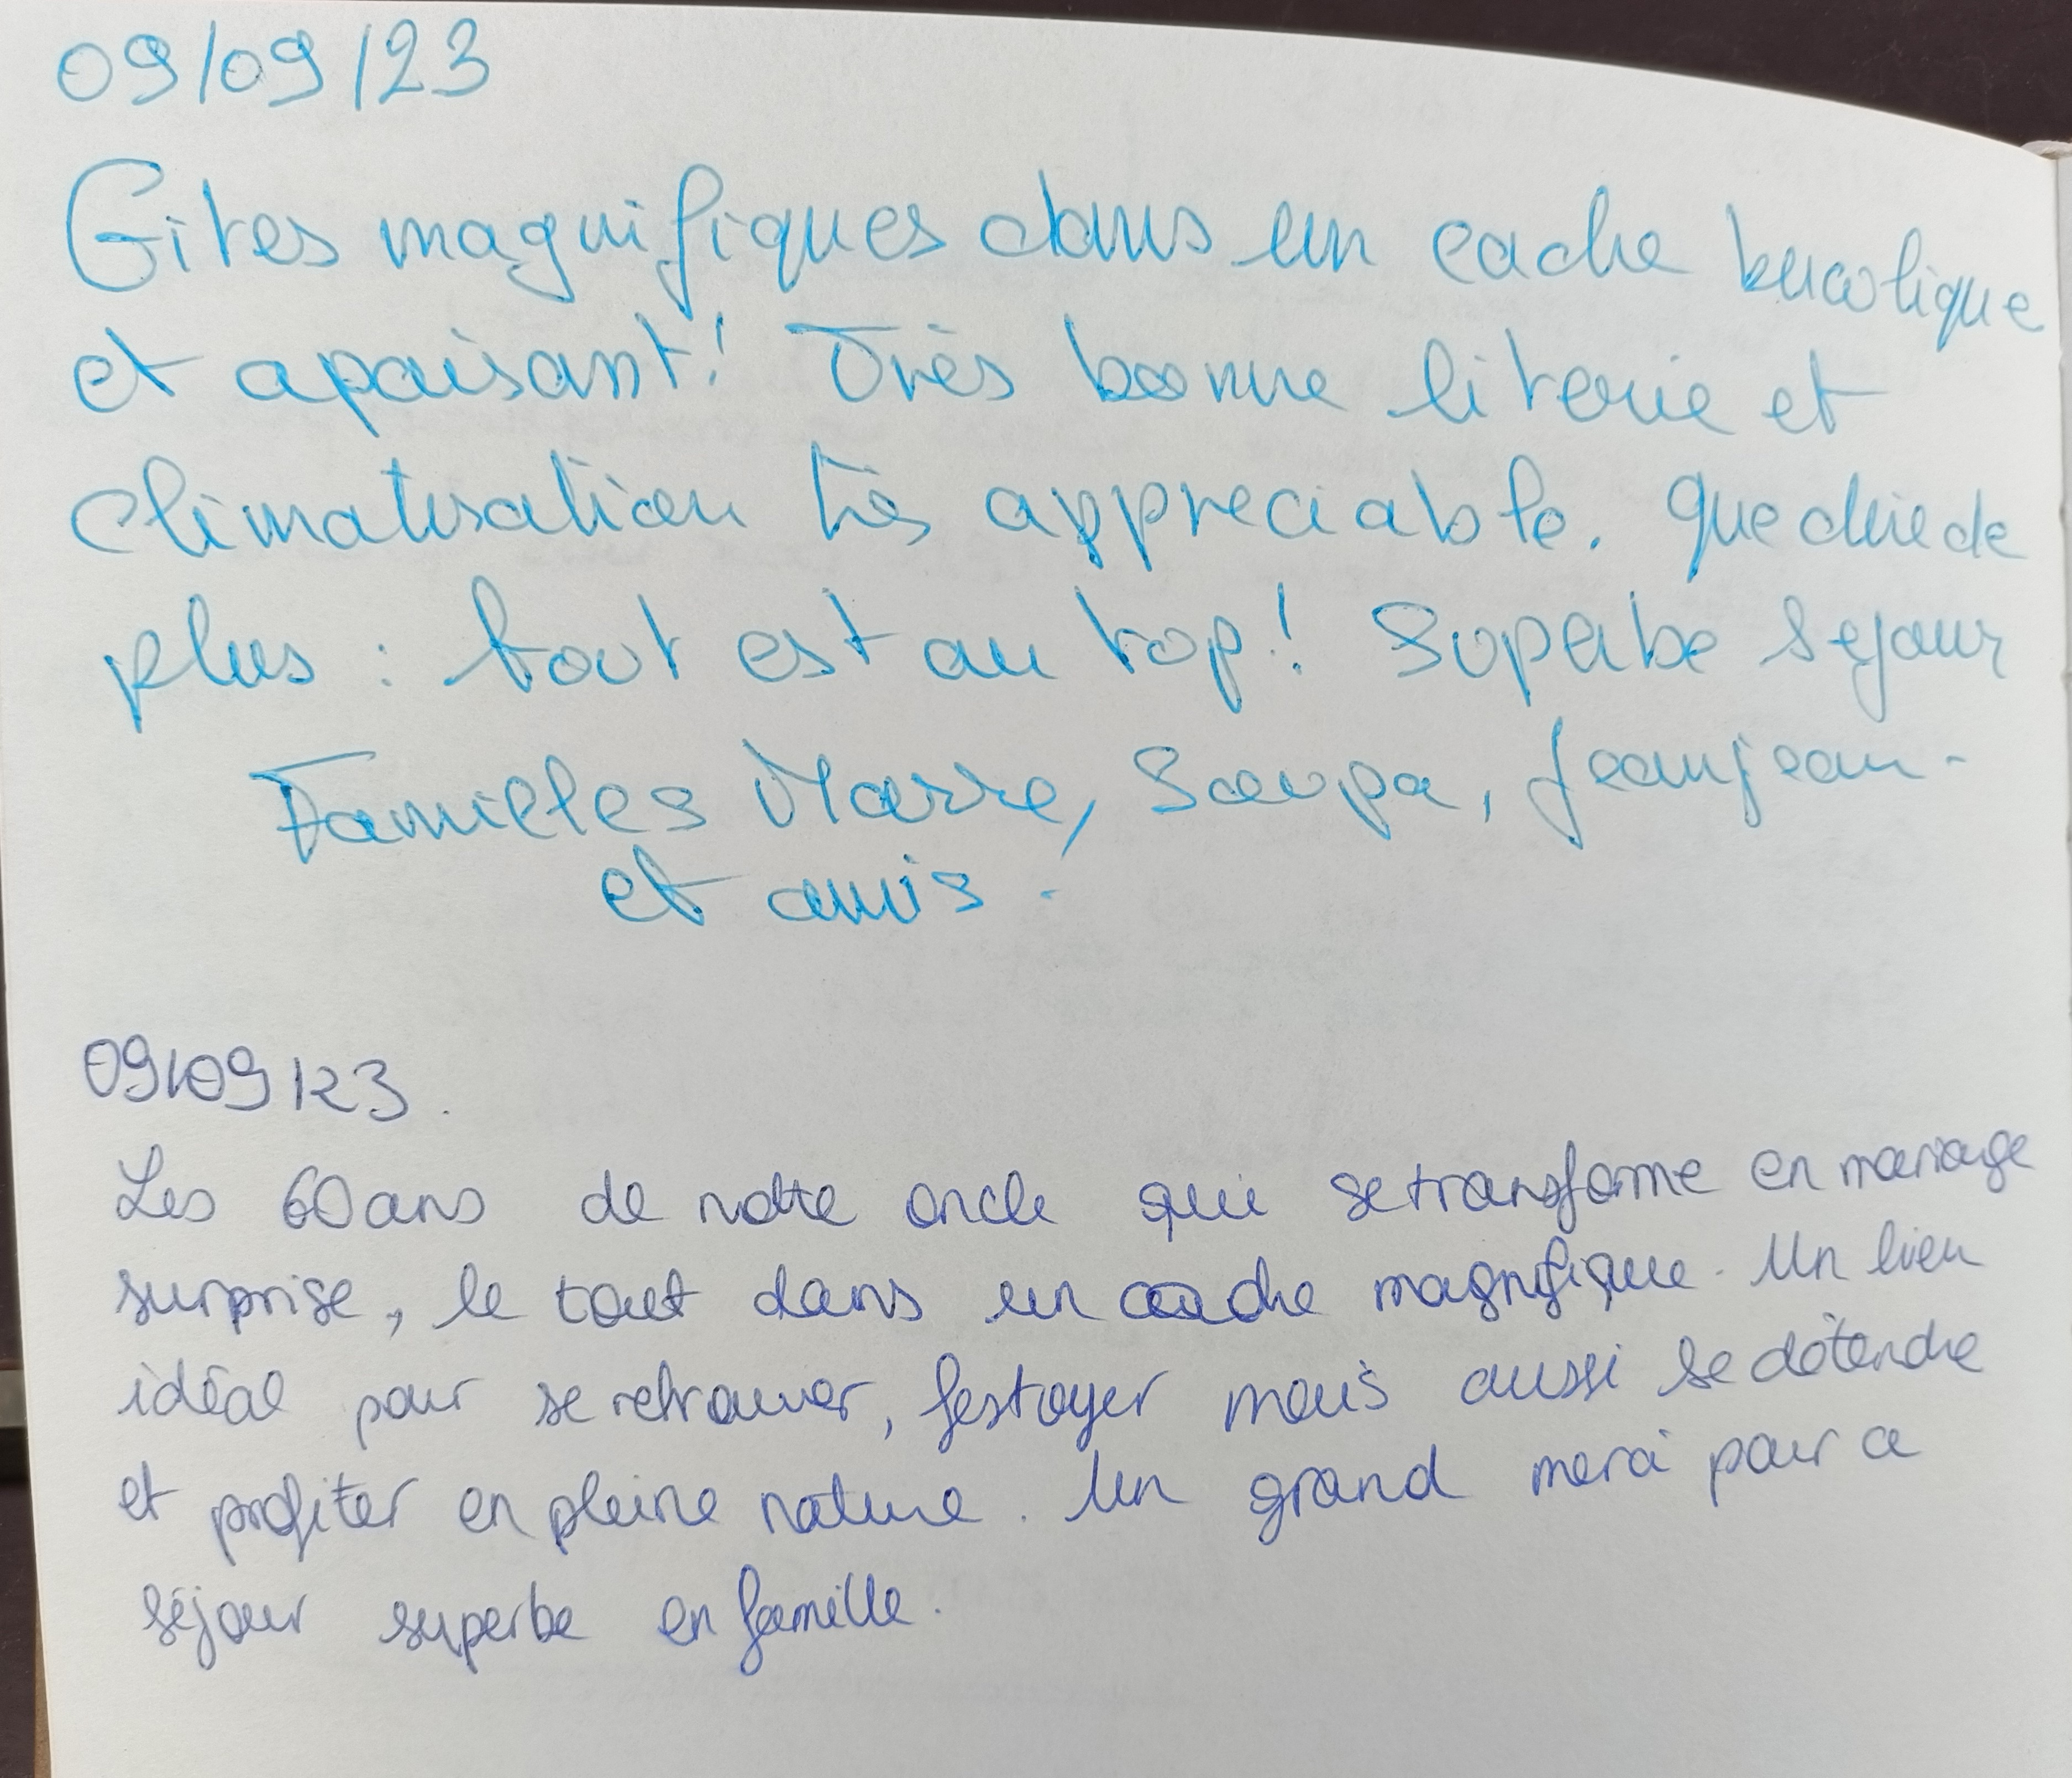 09/09/23
Gites magnifiques dans un cadre bucolique
et apaisant! Très bonne literie et
climatisation très appreciable. Que dire de
plus : tout est au top! Superbe sejour
Familles Marre, Soupa, Jeanjean -
et amis.
09/09/23.
Les 60 ans de notre oncle qui se transforme en mariage
surprise, le tout dans un cadre magnifique. Un lieu
idéal pour se retrouver, festoyer mais aussi se détendre
et profiter en pleine nature. Un grand merci pour ce
séjour superbe en famille.